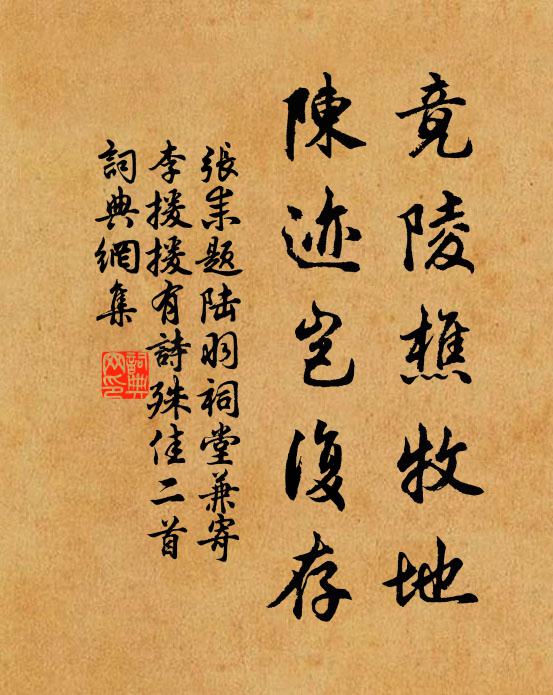 竟陵樵牧地
陳迹岂復存
張耒題陸羽祠堂兼寄
李援援有詩殊佳二首
詞典網集
詞典网印